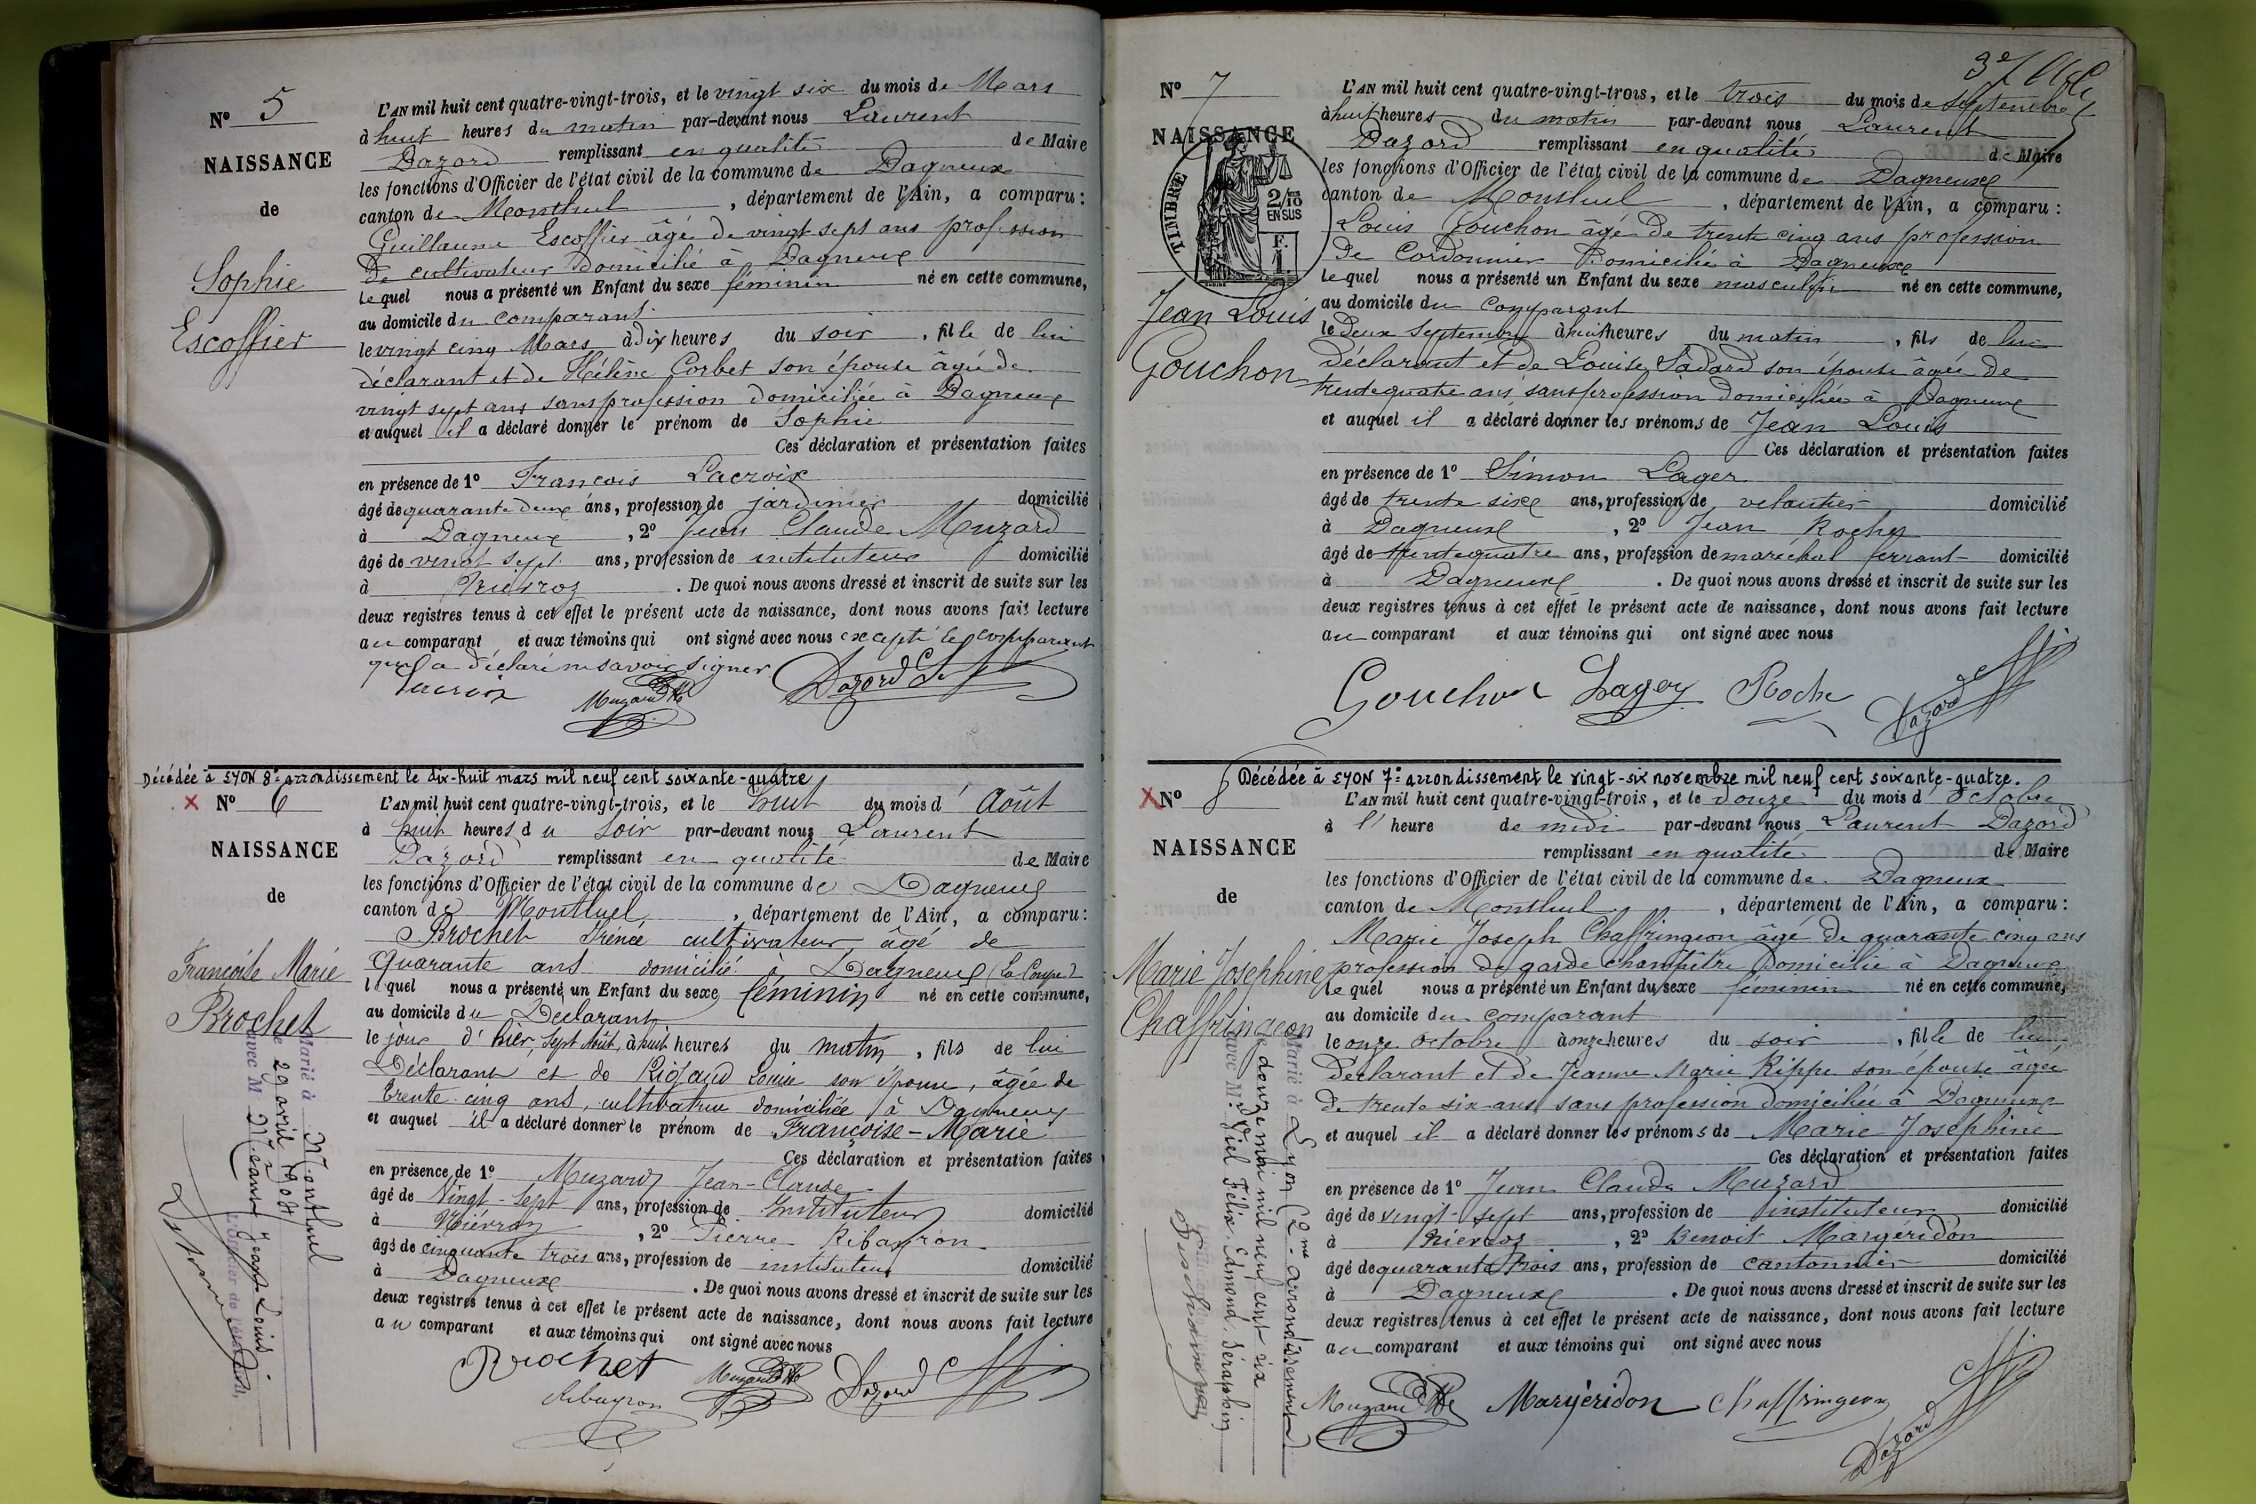 N° 5
NAISSANCE
de
Sophie
Escoffier
L'AN mil huit cent quatre-vingt-trois, et le vingt six du mois de Mars
à huit heures du matin par-devant nous Laurent
Dazord remplissant en qualité de Maire
les fonctions d'Officier de l'état civil de la commune de Dagneux
canton de Montluel, département de l'Ain, a comparu :
Guillaume Escoffier âgé de vingt sept ans profession
de cultivateur domicilié à Dagneux
lequel nous a présenté un Enfant du sexe féminin né en cette commune,
au domicile du comparant
le vingt cinq Mars à dix heures du soir, fille de lui
déclarant et de Hélène Corbet son épouse âgée de
vingt sept ans sans profession domiciliée à Dagneux
et auquel il a déclaré donner le prénom de Sophie
Ces déclaration et présentation faites
en présence de 1° François Lacroix
âgé de quarante deux ans, profession de jardinier domicilié
à Dagneux, 2° Jean Claude Muzard
âgé de vingt sept ans, profession de instituteur domicilié
à Niévroz. De quoi nous avons dressé et inscrit de suite sur les
deux registres tenus à cet effet le présent acte de naissance, dont nous avons fait lecture
au comparant et aux témoins qui ont signé avec nous excepté le comparant
qui a déclaré ne savoir signer
Lacroix Muzard Dazord
Décédée à LYON 8e arrondissement le dix-huit mars mil neuf cent soixante-quatre
x N° 6
NAISSANCE
de
Françoise Marie
Brochet
Marié à Montluel
le 29 avril 1904
avec M Neant Jean Louis.
L'Officier de l'état civil,
L'AN mil huit cent quatre-vingt-trois, et le huit du mois d'Août
à huit heures du soir par-devant nous Laurent
Dazord remplissant en qualité de Maire
les fonctions d'Officier de l'état civil de la commune de Dagneux
canton de Montluel, département de l'Ain, a comparu :
Brochet Irénée cultivateur âgé de
Quarante ans domicilié à Dagneux
lequel nous a présenté un Enfant du sexe féminin né en cette commune,
au domicile du Déclarant
le jour d'hier, sept Août, à huit heures du matin, fils de lui
Déclarant et de Rigaud Louise son épouse, âgée de
trente cinq ans, cultivatrice domiciliée à Dagneux
et auquel il a déclaré donner le prénom de Françoise-Marie
Ces déclaration et présentation faites
en présence de 1° Muzard Jean-Claude
âgé de Vingt-Sept ans, profession de Instituteur domicilié
à Niévroz, 2° Pierre Ribayron
âgé de cinquante trois ans, profession de instituteur domicilié
à Dagneux. De quoi nous avons dressé et inscrit de suite sur les
deux registres tenus à cet effet le présent acte de naissance, dont nous avons fait lecture
au comparant et aux témoins qui ont signé avec nous
Brochet Muzard Dazord
Ribayron
N° 7
NAISSANCE
TIMBRE
2/10
EN SUS
F.
1.
Jean Louis
Gouchon
L'AN mil huit cent quatre-vingt-trois, et le trois du mois de Septembre
à huit heures du matin par-devant nous Laurent
Dazord remplissant en qualité de Maire
les fonctions d'Officier de l'état civil de la commune de Dagneux
canton de Montluel, département de l'Ain, a comparu :
Louis Gouchon âgé de trente cinq ans profession
de Cordonnier Domicilié à Dagneux
lequel nous a présenté un Enfant du sexe masculin né en cette commune,
au domicile du comparant
le deux Septembre à huit heures du matin, fils de lui
déclarant et de Louise Sadard son épouse âgée de
trente quatre ans sans profession domiciliée à Dagneux
et auquel il a déclaré donner les prénoms de Jean Louis
Ces déclaration et présentation faites
en présence de 1° Simon Lager
âgé de trente six ans, profession de veloutier domicilié
à Dagneux, 2° Jean Roche
âgé de trente quatre ans, profession de maréchal ferrant domicilié
à Dagneux. De quoi nous avons dressé et inscrit de suite sur les
deux registres tenus à cet effet le présent acte de naissance, dont nous avons fait lecture
au comparant et aux témoins qui ont signé avec nous
Gouchon Lager Roche Dazord
Décédée à LYON 7e arrondissement le vingt-six novembre mil neuf cent soixante-quatre.
X N° 8
NAISSANCE
de
Marie Josephine
Chaffringeon
Marié à Lyon (2me arrondissement)
le douze mai mil neuf cent six
avec M. Giel Félix Edmond Séraphin
L'AN mil huit cent quatre-vingt-trois, et le douze du mois d'octobre
à l'heure de midi par-devant nous Laurent Dazord
remplissant en qualité de Maire
les fonctions d'Officier de l'état civil de la commune de Dagneux
canton de Montluel, département de l'Ain, a comparu :
Marie Joseph Chaffringeon âgé de quarante cinq ans
profession de garde champêtre domicilié à Dagneux
lequel nous a présenté un Enfant du sexe féminin né en cette commune,
au domicile du comparant
le onze octobre à onze heures du soir, fille de lui
Déclarant et de Jeanne Marie Rippe son épouse âgée
de trente six ans sans profession domiciliée à Dagneux
et auquel il a déclaré donner les prénoms de Marie Joséphine
Ces déclaration et présentation faites
en présence de 1° Jean Claude Muzard
âgé de vingt-sept ans, profession de instituteur domicilié
à Niévroz, 2° Benoit Margéridon
âgé de quarante trois ans, profession de cantonnier domicilié
à Dagneux. De quoi nous avons dressé et inscrit de suite sur les
deux registres tenus à cet effet le présent acte de naissance, dont nous avons fait lecture
au comparant et aux témoins qui ont signé avec nous
Muzard Margéridon Chaffringeon
Dazord